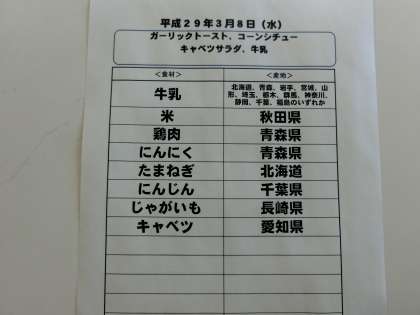 平成29年3月8日(水)
ガーリックトースト、コーンシチュー
キャベツサラダ、牛乳
<食材> <産地>
牛乳 北海道、青森、岩手、宮城、山
形、埼玉、栃木、群馬、神奈川、
静岡、千葉、福島のいずれか
米 秋田県
鶏肉 青森県
にんにく 青森県
たまねぎ 北海道
にんじん 千葉県
じゃがいも 長崎県
キャベツ 愛知県